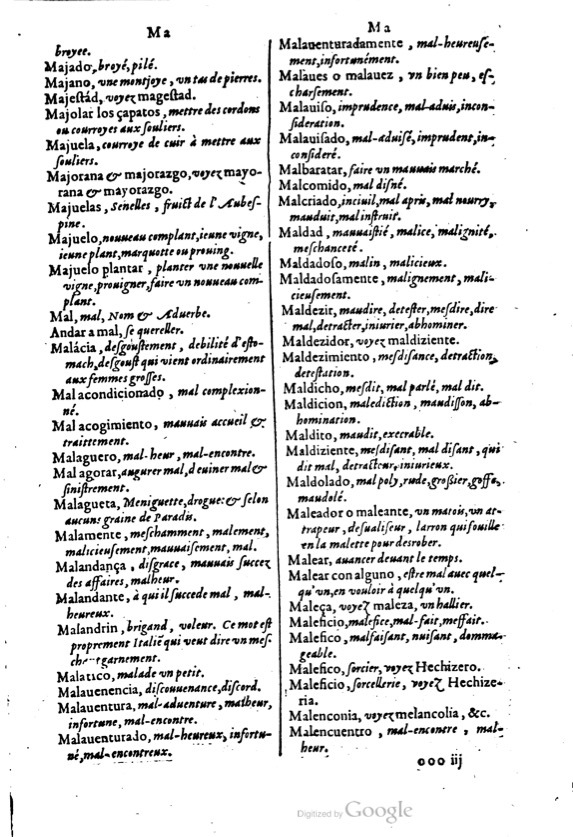 Ma
broyee.
Majado, broyé, pilé.
Majano, vne montjoye, vn tas de pierres.
Majestád, voyez magestad.
Majolar los çapatos, mettre des cordons
ou courroyes aux souliers.
Majuela, courroye de cuir à mettre aux
souliers.
Majorana & majorazgo, voyez mayo-
rana & mayorazgo.
Majuelas, Senelles, fruict de l'Aubes-
pine.
Majuelo, nouueau complant, ieune vigne,
ieune plant, marquotte ou prouing.
Majuelo plantar, planter vne nouuelle
vigne, prouigner, faire vn nouueau com-
plant.
Mal, mal, Nom & Aduerbe.
Andar a mal, se quereller.
Malácia, desgoustement, debilité d'esto-
mach, desgoust qui vient ordinairement
aux femmes grosses.
Mal acondicionado, mal complexion-
né.
Mal acogimiento, mauuais accueil &
traittement.
Malaguero, mal-heur, mal-encontre.
Mal agorar, augurer mal, deuiner mal &
sinistrement.
Malagueta, Meniguette, drogue: & selon
aucuns graine de Paradis.
Malamente, meschamment, malement,
malicieusement, mauuaisement, mal.
Malandança, disgrace, mauuais succez
des affaires, malheur.
Malandante, à qui il succede mal, mal-
heureux.
Malandrin, brigand, voleur. Ce mot est
proprement Italiē qui veut dire vn mes-
garnement.
Malatico, malade vn petit.
Malauenencia, disconuenance, discord.
Malauentura, mal-aduenture, malheur,
infortune, mal-encontre.
Malauenturado, mal-heureux, infortu-
né, mal-encontreux.
Ma
Malauenturadamente, mal-heureuse-
ment, infortunément.
Malaues o malauez, vn bien peu, es-
charsement.
Malauiso, imprudence, mal-aduis, incon-
sideration.
Malauisado, mal-aduisé, imprudent, in-
consideré.
Malbaratar, faire vn mauuais marché.
Malcomido, mal disné.
Malcriado, inciuil, mal apris, mal nourry,
mauduit, mal instruit.
Maldad, mauuaistié, malice, malignité,
meschanceté.
Maldadoso, malin, malicieux.
Maldadosamente, malignement, mali-
cieusement.
Maldezir, maudire, detester, mesdire, dire
mal, detracter, iniurier, abhominer.
Maldezidor, voyez maldiziente.
Maldezimiento, mesdisance, detraction,
detestation.
Maldicho, mesdit, mal parlé, mal dit.
Maldicion, malediction, maudisson, ab-
homination.
Maldito, maudit, execrable.
Maldiziente, mesdisant, mal disant, qui
dit mal, detracteur, iniurieux.
Maldolado, mal poly, rude, grossier, goffe,
maudolé.
Maleador o maleante, vn matois, vn at-
trapeur, desualiseur, larron qui fouille
en la malette pour desrober.
Malear, auancer deuant le temps.
Malear con alguno, estre mal auec quel-
qu'vn, en vouloir à quelqu'vn.
Maleça, voyez maleza, vn hallier.
Maleficio, malefice, mal-fait, meffait.
Malefico, malfaisant, nuisant, domma-
geable.
Malefico, sorcier, voyez Hechizero.
Maleficio, sorcellerie, voyez Hechize-
ria.
Malenconia, voyez melancolia, &c.
Malencuentro, mal-encontre, mal-
heur.
ooo iij
Digitized by Google